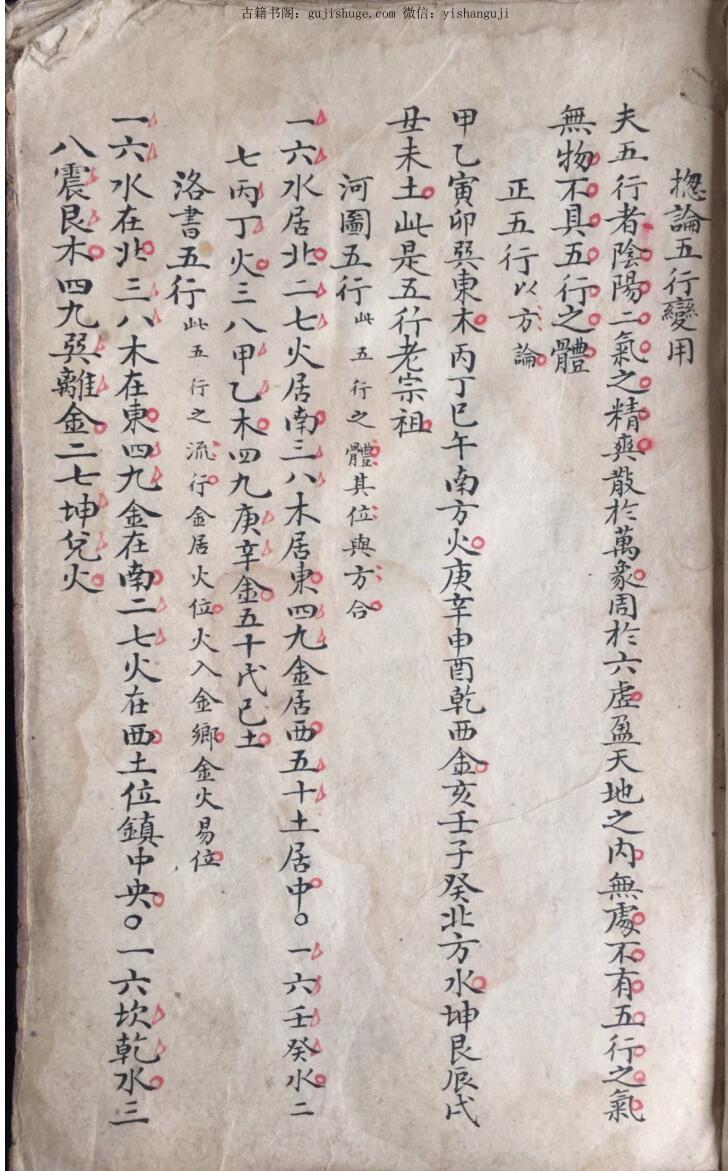 古籍书阁：gujishuge.com 微信：yishanguji
揔論五行變用
夫五行者陰陽二氣之精爽散於萬象周於六虛盈天地之内無處不有五行之氣
無物不具五行之體
正五行以方論
甲乙寅卯巽東木丙丁巳午南方火庚辛申酉乾西金亥壬子癸北方水坤艮辰戌
丑未土此是五行老宗祖
河圖五行此五行之體其位與方合
一六水居北二七火居南三八木居東四九金居西五十土居中○一六壬癸水二
七丙丁火三八甲乙木四九庚辛金五十戊己土
洛書五行此五行之流行金居火位火入金鄉金火易位
一六水在北三八木在東四九金在南二七火在西土位鎮中央○一六坎乾水三
八震艮木四九巽離金二七坤兌火